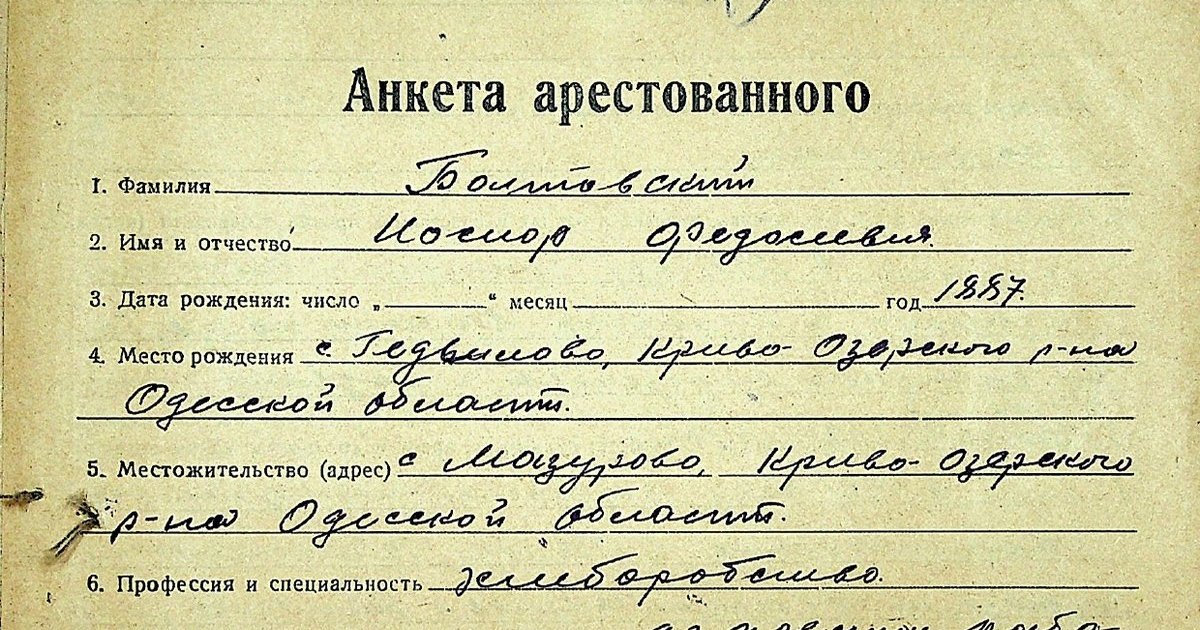 Анкета арестованного
1. Фамилия Болтовский
2. Имя и отчество Иосиф Федосеевич
3. Дата рождения: число „ “ месяц год 1887.
4. Место рождения с. Гедвилово, Криво-Озерского р-на
Одесской области.
5. Местожительство (адрес) с Мазурово, Криво-Озерского
р-на Одесской области.
6. Профессия и специальность хлеборобство.